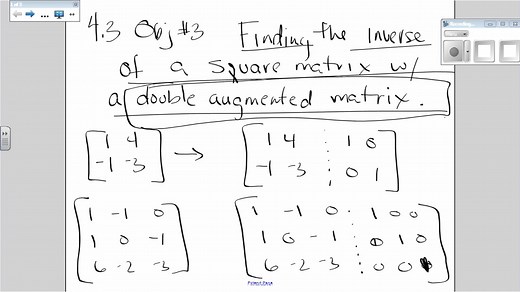 4.3 Obj #3 Finding the inverse
of a square matrix w/
a double augmented matrix.
1 4 → 1 4 1 0
-1 -3 -1 -3 0 1
1 -1 0 1 -1 0 1 0 0
1 0 -1 1 0 -1 0 1 0
6 -2 -3 6 -2 -3 0 0